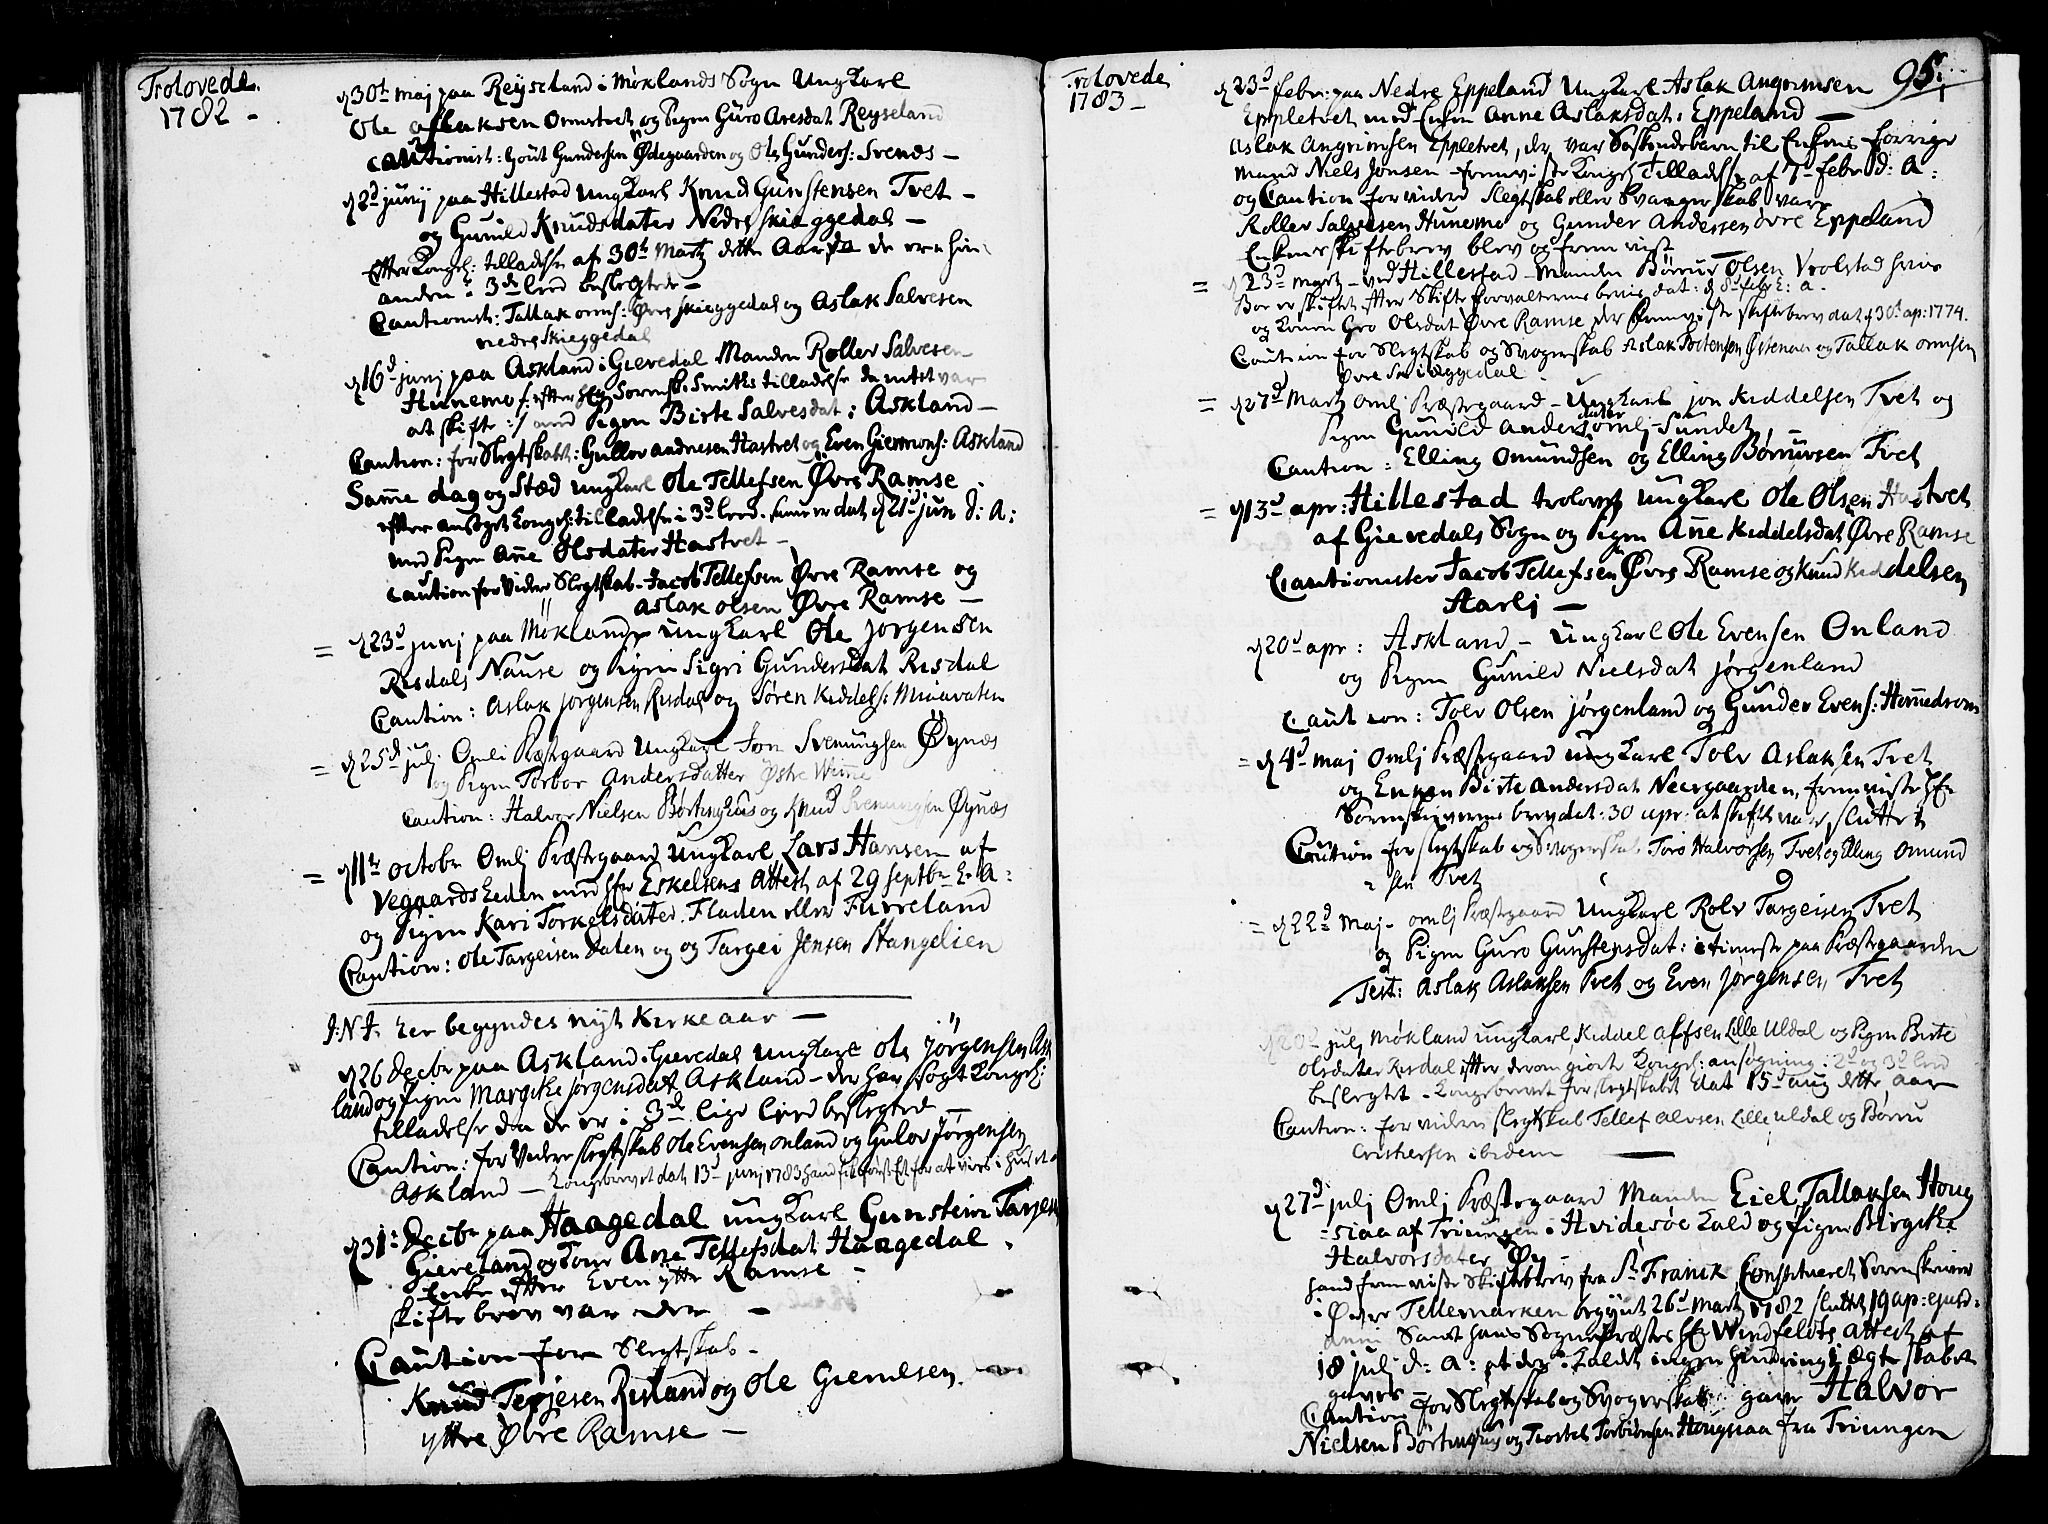 Trolovede
1782 -
d 30t maj paa Reyseland i Møklands Sogn Ungkarl
Ole aslaksen Ormtvet og Pigen Guro Aresdat Reyseland
cautionist: Gout Gundersen Ødegaarden og Ole Gunders: Svenes -
d 2d junij paa Hillestad Ungkarl Knud Gunstensen Tvet -
og Gunild Knudsdater Nedre skieggedal -
Efter Kongel: tilladelse af 30t Martz dette Aar da de ere hin
anden i 3de Leed beslegtede -
Cautionist: Tallak orms: Øvre skieggedal og Aslak Salvesen
nedre skieggedal
d 16d junj paa Askland i Gievedal Manden Roller Salvesen
Hunemo /: efter Hr Sorenskr: Smiths tilladelse da intet var
at skifte :/ med Pigen Birte Salvesdat: Askland -
Caution: for Slegtskabet: Gullov andresen Hastvet og Even Giermons: Askland
Samme dag og Stæd Ungkarl Ole Tellefsen Øvre Ramse
efter ansøgt Kongel: tilladelse i 3d Leed. som er dat d 21d jun d: A:
med Pigen Anne Olsdater Hastvet -
caution for Vider Slegtskab - Jacob Tellefsen Øvre Ramse og
Aslak olsen Øvre Ramse -
= d 23d junj paa Møkland ungkarl Ole Jørgensen
Risdals Nause og Pigen Sigri Gundersdat Risdal
Caution: Aslak jørgensen Risdal og Søren Kiddels: Miaavaten
= d 25d julj Omli Præstgaard Ungkarl Jon Svenungsen Øynæs
og Pigen Torbor Andersdatter Østre Wimme
Caution: Halvor Nielsen Børtinghus og Knud Svenungsen Øynæs
= d 11te octobr Omlj Præstegaard Ungkarl Lars Hansen af
Vegaardsheden med Hr Eskelsens Attest af 29 septbr h: A:
og Pigen Kari Torkelsdater. Fladen eller Furreland
Caution: Ole Targeisen Dalen og og Targei Jensen Hangelien
J:N:J: her begyndes nyt Kirke aar -
d 26 Decbr paa Askland i Gievedal Ungkarl Ole Jørgensen Ask
land og Pigen Margithe Jørgensdat Askland - der har søgt Kongel:
tilladelse da de er i 3de lige Leed beslegtede -
Caution: for Videre slegtskab Ole Evensen Onland og Gulov Jørgensen
Askland - Kongebrevet dat 13d junj 1783
d 31: Decbr paa Haagedal ungkarl Gunsteen Tarjes
Gieveland og Kone Ane Tellefsdat Haagedal.
Enke efter Even ytte Ramse -
skifte brev var der -
Caution for Slegtskab -
Knud Terjesen Risland og Ole Giermsen
yttre Øvre Ramse -
Trolovede
1783 -
95.
d 23d febr: paa Nedre Eppeland Ungkarl Aslak Angrimsen
Eppletvet med Enken Anne Aslaksdat: Eppeland -
Aslak Angrimsen Eppletvet, der var Søskendebarn til Enkens forrige
Mand Niels Jonsen - fremviste Kongel Tilladelse af 7- febr d: A:
og Caution for videre Slegtskab eller Svogerskab vare
Roller Salvesen Hunemo og Gunder Andersen øvre Eppeland
Enkens skiftebrev blev og frem vist
= d 23d martz - ved Hillestad - Manden Børu Olsen Vrolstad hvis
Boe er skiftet efter Skifte forvalterens bevis dat: d 8d febr: h: a.
og Konen Gro Olsdat Øvre Ramse der fremviste skiftebrev dat d 30t ap: 1774.
Caution for Slegtskab og Svogerskab Aslak Tostensen Østenaa og Tallak ormsen
Øvre Skiæggedal
= d 27d Martz Omlj Præstegaard - Ungkarl jon Kiddelsen Tvet og
Pigen Gunild Andersdater omlj-Sundet, -
Caution: Elling Omundsen og Elling Børuvsen Tvet
= d 13d apr: Hillestad trolovet Ungkarl Ole Olsen Hastvet
af Gievedals Sogn og Pigen Anne Kiddelsdat Øvre Ramse
Cautionister Jacob Tellefsen Øvre Ramse og Knud Kiddelsen
Harlj -
d 20d apr: Askland - Ungkarl Ole Evensen Onland
og Pigen Gunild Nielsdat jørgenland
Caution: Tolv Olsen jørgenland og Gunder Evens: Homedrom
= d 4d maj Omlj Præstegaard ungkarl Tolv Aslaksen Tvet
og Enken Birte Andersdat Neergaarden, fremviste Hr
Sorenskriverens brev dat: 30 apr: at skiftet var sluttet
Caution for slegtskab og Svogerskab Toro Halvorsen Tvet og Elling Omund
= sen Tvet
= d 22d Maj - omlj Præstegaard Ungkarl Rolv Targeisen Tvet
og Pigen Guro Gunstensdat: itieneste paa Præstegaarden
Test: Aslak Aslaksen Tvet og Even Jørgensen Tvet
d 20d julj Møkland ungkarl Kiddel Alfsen Lille Uldal og Pigen Birte
olsdater Risdal efter derom giorte Kongel: ansøgning i 2d og 3d leed
beslegtet - Kongebrevet for slegtskabet dat 15d aug dette aar
Caution: for videre slegtskab Tellef alvsen Lille uldal og Børu
Cristhensen ibidem -
d 27d julj Omlj Præstegaard Manden Eiel Tallaksen Houg
= siaa af Triungen i Hvidesøe Kald og Pigen Birgithe
Halvorsdater Øy -
hand fremviste Skiftebrev fra Sr Franck Constitueret Sorenskriver
i Øvre Tellemarken begynt 26d Martz 1782 sluttet 19 ap: ejusd:
anni Samt hans Sognepræstes Hr Windfelds attest af
18 julj d: a: at der i Kaldet ingen hindring i ægteskabet
gaves -
Caution for Slegtskab og Svogerskab gave Halvor
Nielsen Børtinghus og Tiostel Torbiønsen Hougsiaa fra Triungen